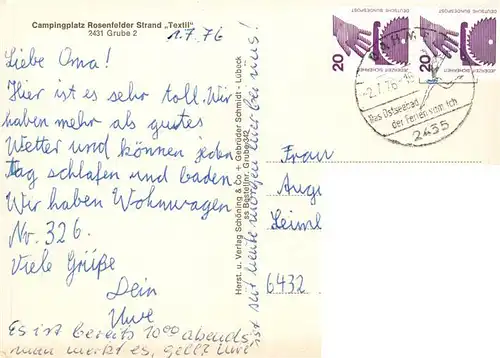 Campingplatz Rosenfelder Strand „Textil"
2431 Grube 2
1.7.76
Liebe Oma!
Hier ist es sehr toll. Wir
haben mehr als gutes
Wetter und können jeden
Tag schlafen und baden.
Wir haben Wohnwagen
Nr. 326.
Viele Grüße
Dein
Uwe
Es ist bereits 10⁰⁰ abends,
man merkt es, gellt Uwe
ist seit heute morgen hier bei uns!
Herst. u. Verlag Schöning & Co + Gebrüder Schmidt - Lübeck
Bestellnr. Grube
DEUTSCHE BUNDESPOST
20
JEDERZEIT SICHERHEIT
DEUTSCHE BUNDESPOST
20
JEDERZEIT SICHERHEIT
DAHME
-2.7.76
Das Ostseebad
der Ferien vom Ich
2435
Frau
6432